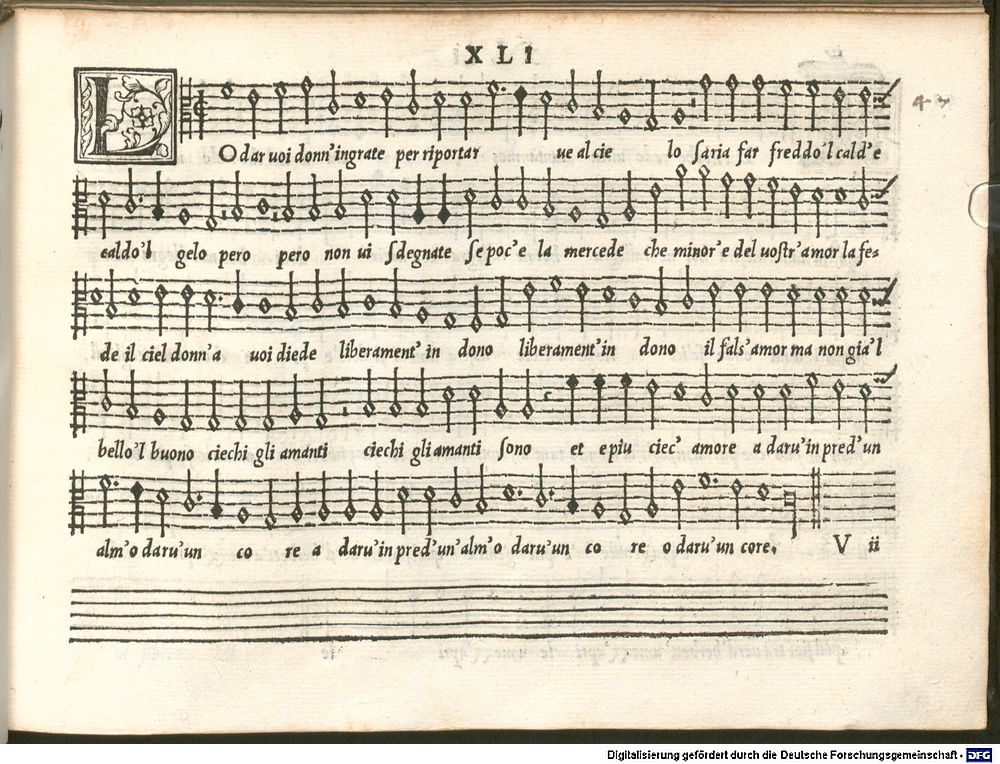 XLI
LO dar uoi donn'ingrate per riportar ue al cie lo saria far freddo'l cald'e
caldo'l gelo pero pero non ui sdegnate se poc'e la mercede che minor'e del uostr'amor la fe=
de il ciel donn'a uoi diede liberament'in dono liberament'in dono il fals'amor ma non gia'l
bello'l buono ciechi gli amanti ciechi gli amanti sono et e piu ciec' amore a daru'in pred'un
alm'o daru'un co re a daru'in pred'un'alm'o daru'un co re o daru'un core.
V ii
Digitalisierung gefördert durch die Deutsche Forschungsgemeinschaft - DFG